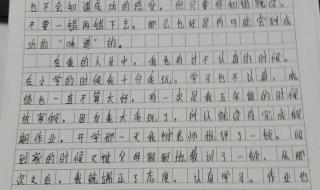 也不会知道成功的感受，但只要你知错就改，
不要一错再错下去，那么也好是有可能会到成
功的“味道”的。
在我的人生中，我也有过不认真的时候。
在小学的时候我十分贪玩，学习也不认真，成
绩也一直不算太好，有一次是我五年级的时候
放寒假，因为我太贪玩了，所以就没有完成假
期作业。开学那一天我被老师批评了一顿。回
到家的时候又被父母狠狠地教训了一顿。从那
次之后，我就端正了态度，认真学习，作业也